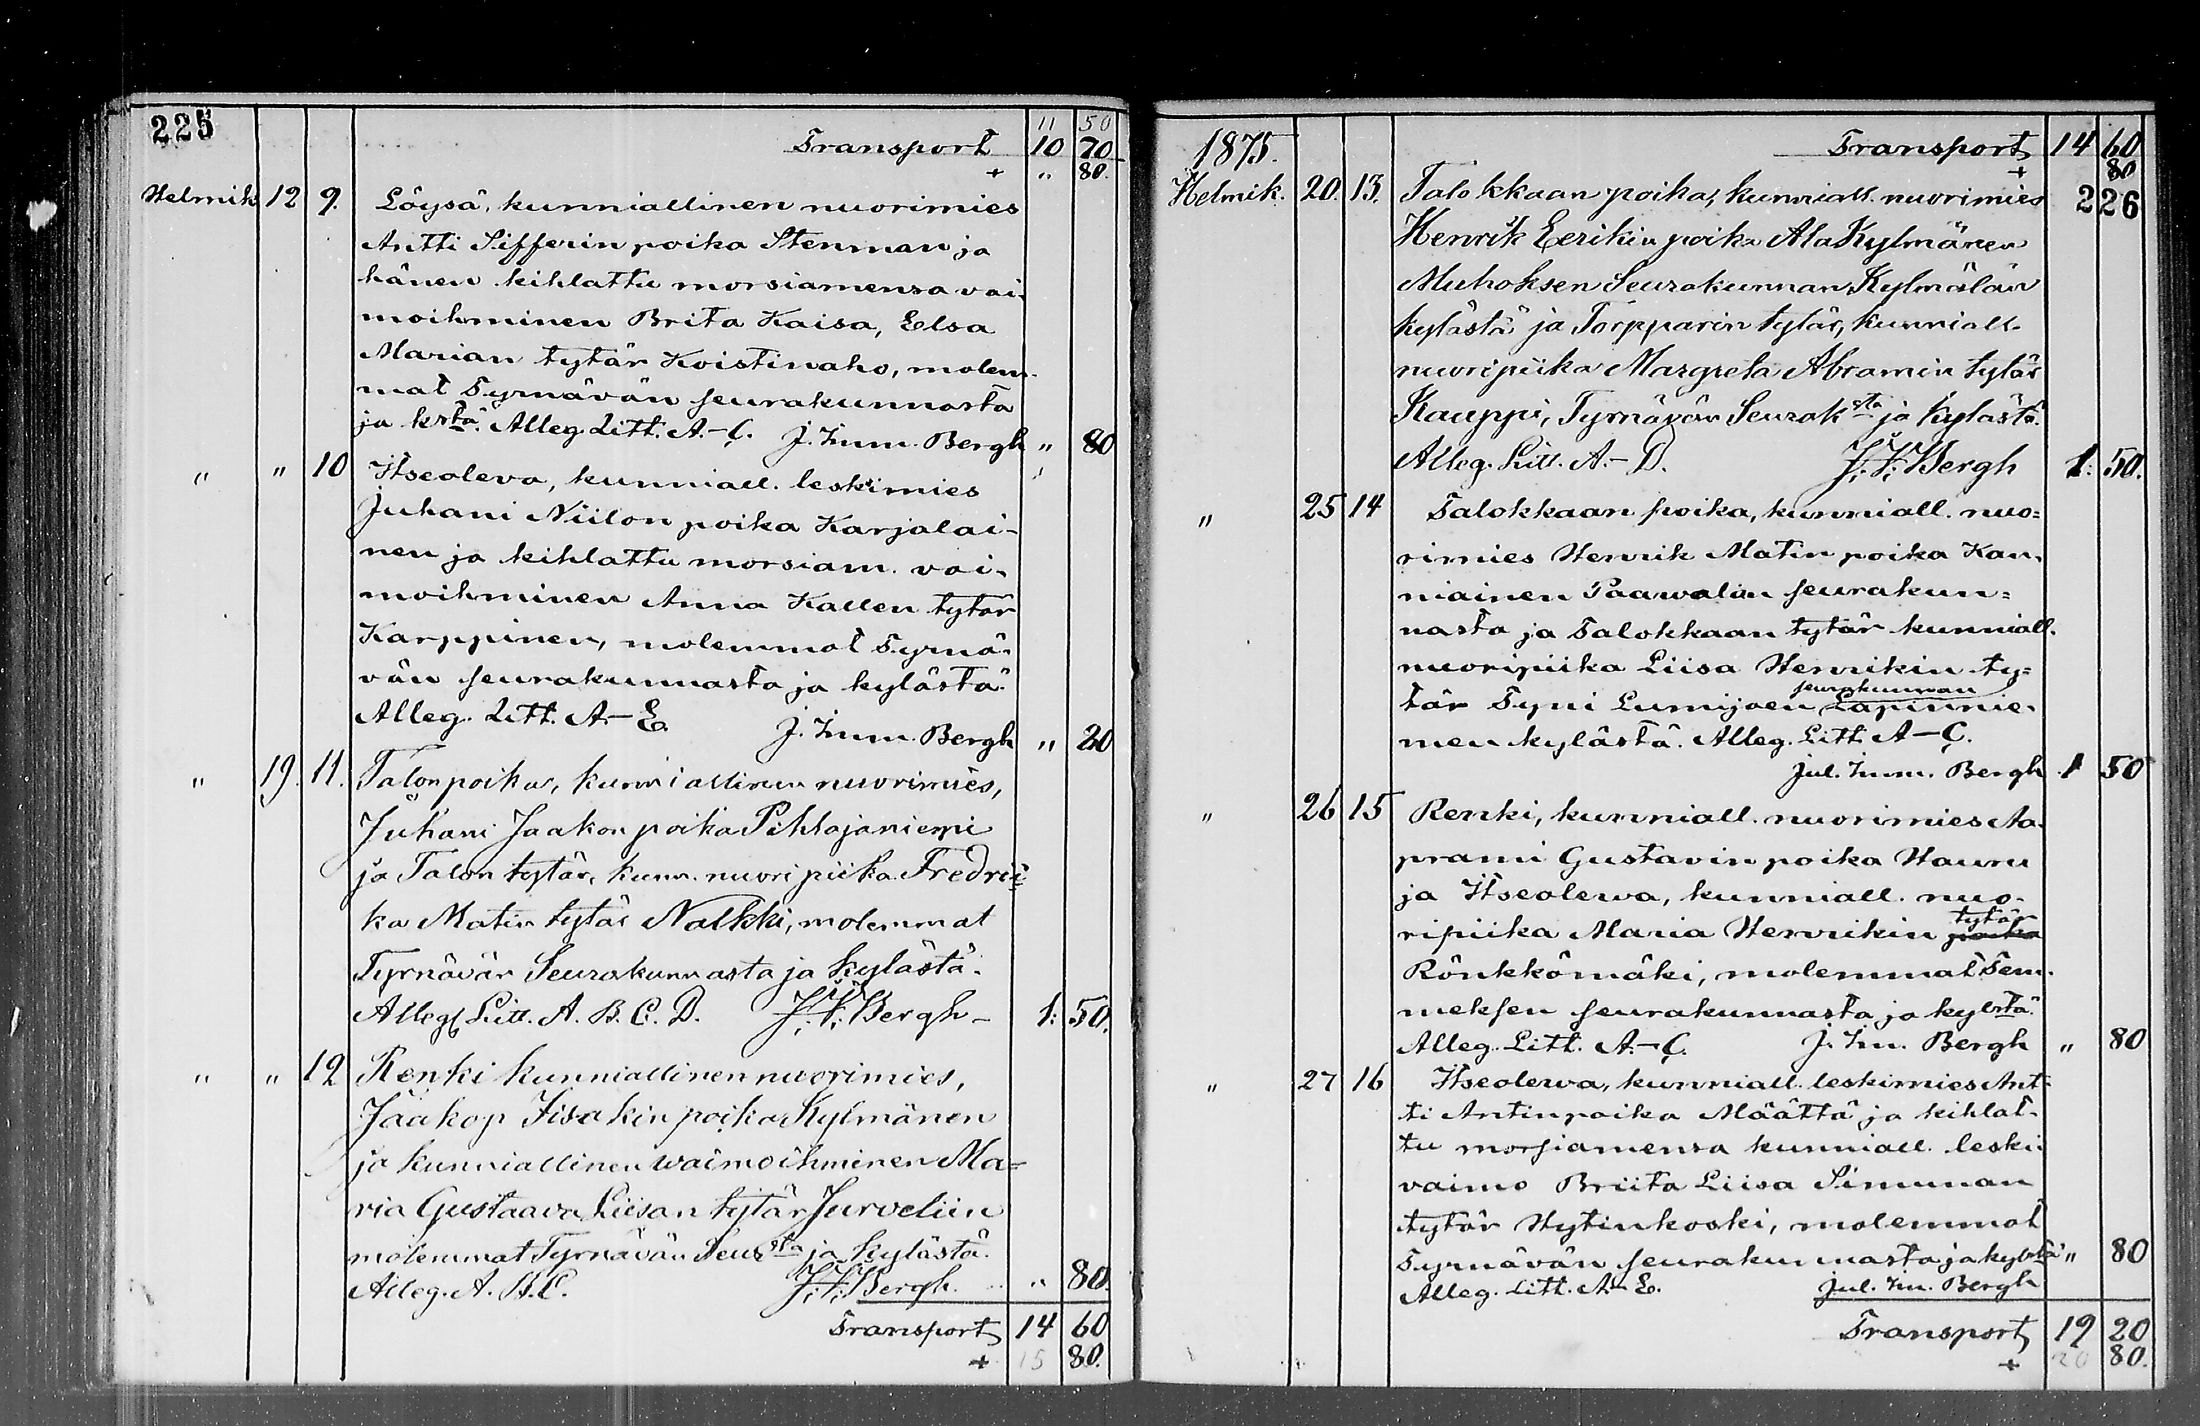 225
11 50
Transport 10 70
+ " 80.
Helmik 12 9. Löysä, kunniallinen nuorimies
Antti Sifferin poika Stenman ja
hänen kihlattu morsiamensa vai-
moihminen Brita Kaisa, Elsa
Marian tytär Koistinaho, molem-
mat Tyrnävän seurakunnasta
ja kstä. Alleg. Litt. A.-C. J. Imm. Bergh " 80
" " 10 Itseoleva, kunniall. leskimies
Juhani Niilon poika Karjalai-
nen ja kihlattu morsiam. vai-
moihminen Anna Kallen tytär
Karppinen, molemmat Tyrnä-
vän seurakunnasta ja kylästä.
Alleg. Litt. A.-E. J. Imm. Bergh " 20
" 19. 11. Talonpoika, kunniallinen nuorimies,
Juhani Jaakon poika Pihlajaniemi
ja Talon tytär, kunn. nuori piika Fredrii-
ka Matin tytär Nalkki, molemmat
Tyrnävän Seurakunnasta ja Kylästä.
Alleg. Litt. A. B. C. D. J. I. Bergh- 1: 50.
" " 12 Renki kunniallinen nuorimies,
Jaakop Iisakin poika Kylmänen
ja kunniallinen waimoihminen Ma=
ria Gustaava Liisan tytär Jurveliin
molemmat Tyrnävän Seursta ja kylästä.
Alleg. A. B. C. J. I. Bergh. " 80.
Transport 14 60
+ 15 80.
1875.
Transport 14 60
+ 80
226
Helmik. 20. 13. Talokkaan poika, kunniall. nuorimies
Henrik Eerikin poika AlaKylmänen
Muhoksen Seurakunnan, Kylmälän
kylästä ja Torpparin tytär, kunniall.
nuoripiika Margreta Abramin tytär
Kauppi, Tyrnävän Seuraksta ja kylästä.
Alleg. Litt. A.-D. J. I. Bergh 1: 50.
" 25 14 Talokkaan poika, kunniall. nuo=
rimies Henrik Matin poika Kan-
niainen Paawolan seurakun=
nasta ja Talokkaan tytär kunniall.
nuoripiika Liisa Henrikin ty=
seurakunnan
tär Typi Lumijoen Lapinnie-
men kylästä. Alleg. Litt. A-C.
Jul. Imm. Bergh 1 50
" 26 15 Renki, kunniall. nuorimies Aa-
prami Gustavin poika Hauru
ja Itseolewa, kunniall. nuo-
tytär
ripiika Maria Henrikin poika
Rönkkömäki, molemmat Tem-
meksen seurakunnasta ja kylstä.
Alleg. Litt. A.-C. J. Im. Bergh " 80
" 27 16 Itseolewa, kunniall. leskimies Ant-
ti Antinpoika Määttä ja kihlat-
tu morsiamensa kunniall. leski-
vaimo Briita Liisa Simunan
tytär Hytinkoski, molemmat
Tyrnävän seurakunnasta ja kylstä " 80
Alleg. Litt. A-E. Jul. Im. Bergh
Transport 19 20
+ 20 80.